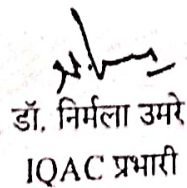 डॉ. निर्मला उमरे
IQAC प्रभारी